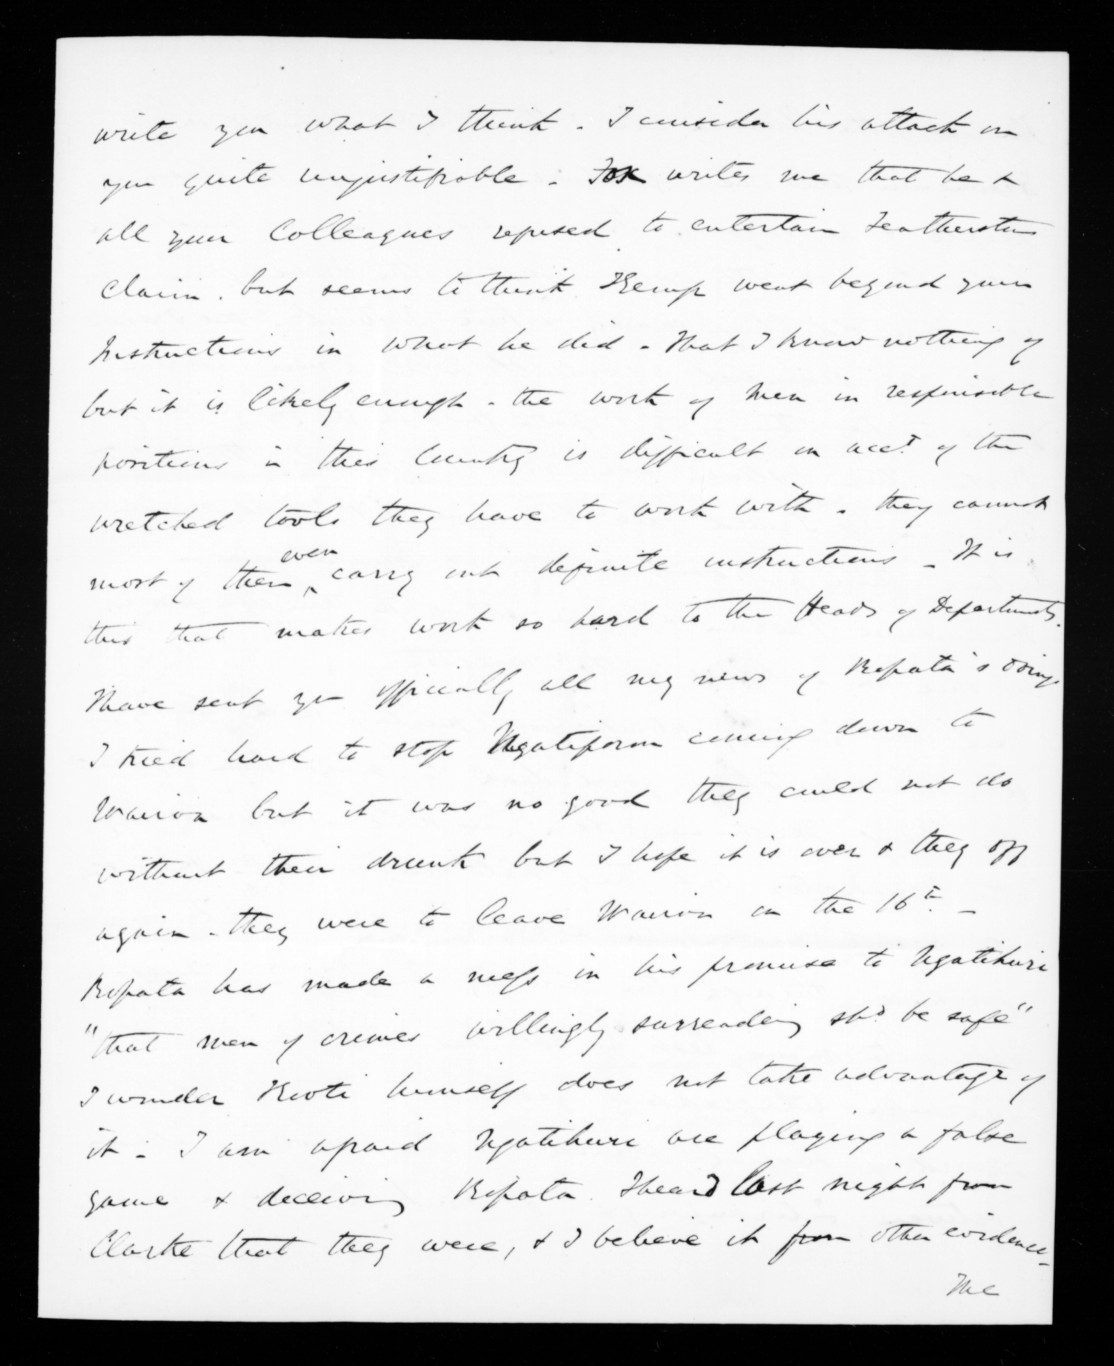 write you what I think - I consider his attack on
you quite unjustifiable - Fox writes me that he &
all your Colleagues refused to entertain Featherstons
claim, but seems to think Kemp went beyond your
Instructions in what he did - That I know nothing of
but it is likely enough - the work of men in responsible
positions in this Country is difficult on acct. of the
wretched tools they have to work with - they cannot
most of them even carry out definite instructions - It is
this that makes work so hard to the Heads of Departments.
I have sent you officially all my news of Ropata's doings
I tried hard to stop Ngatiporou coming down to
Wairoa but it was no good they could not do
without their drunk but I hope it is over & they off
again - they were to leave Wairoa on the 16th. -
Ropata has made a mess in his promise to Ngatihuri
"that men of crimes willingly surrendering shd. be safe"
I wonder Kooti himself does not take advantage of
it - I am afraid Ngatihuri are playing a false
game & deceiving Ropata. I heard last night from
Clarke that they were, & I believe it from other evidence -
The